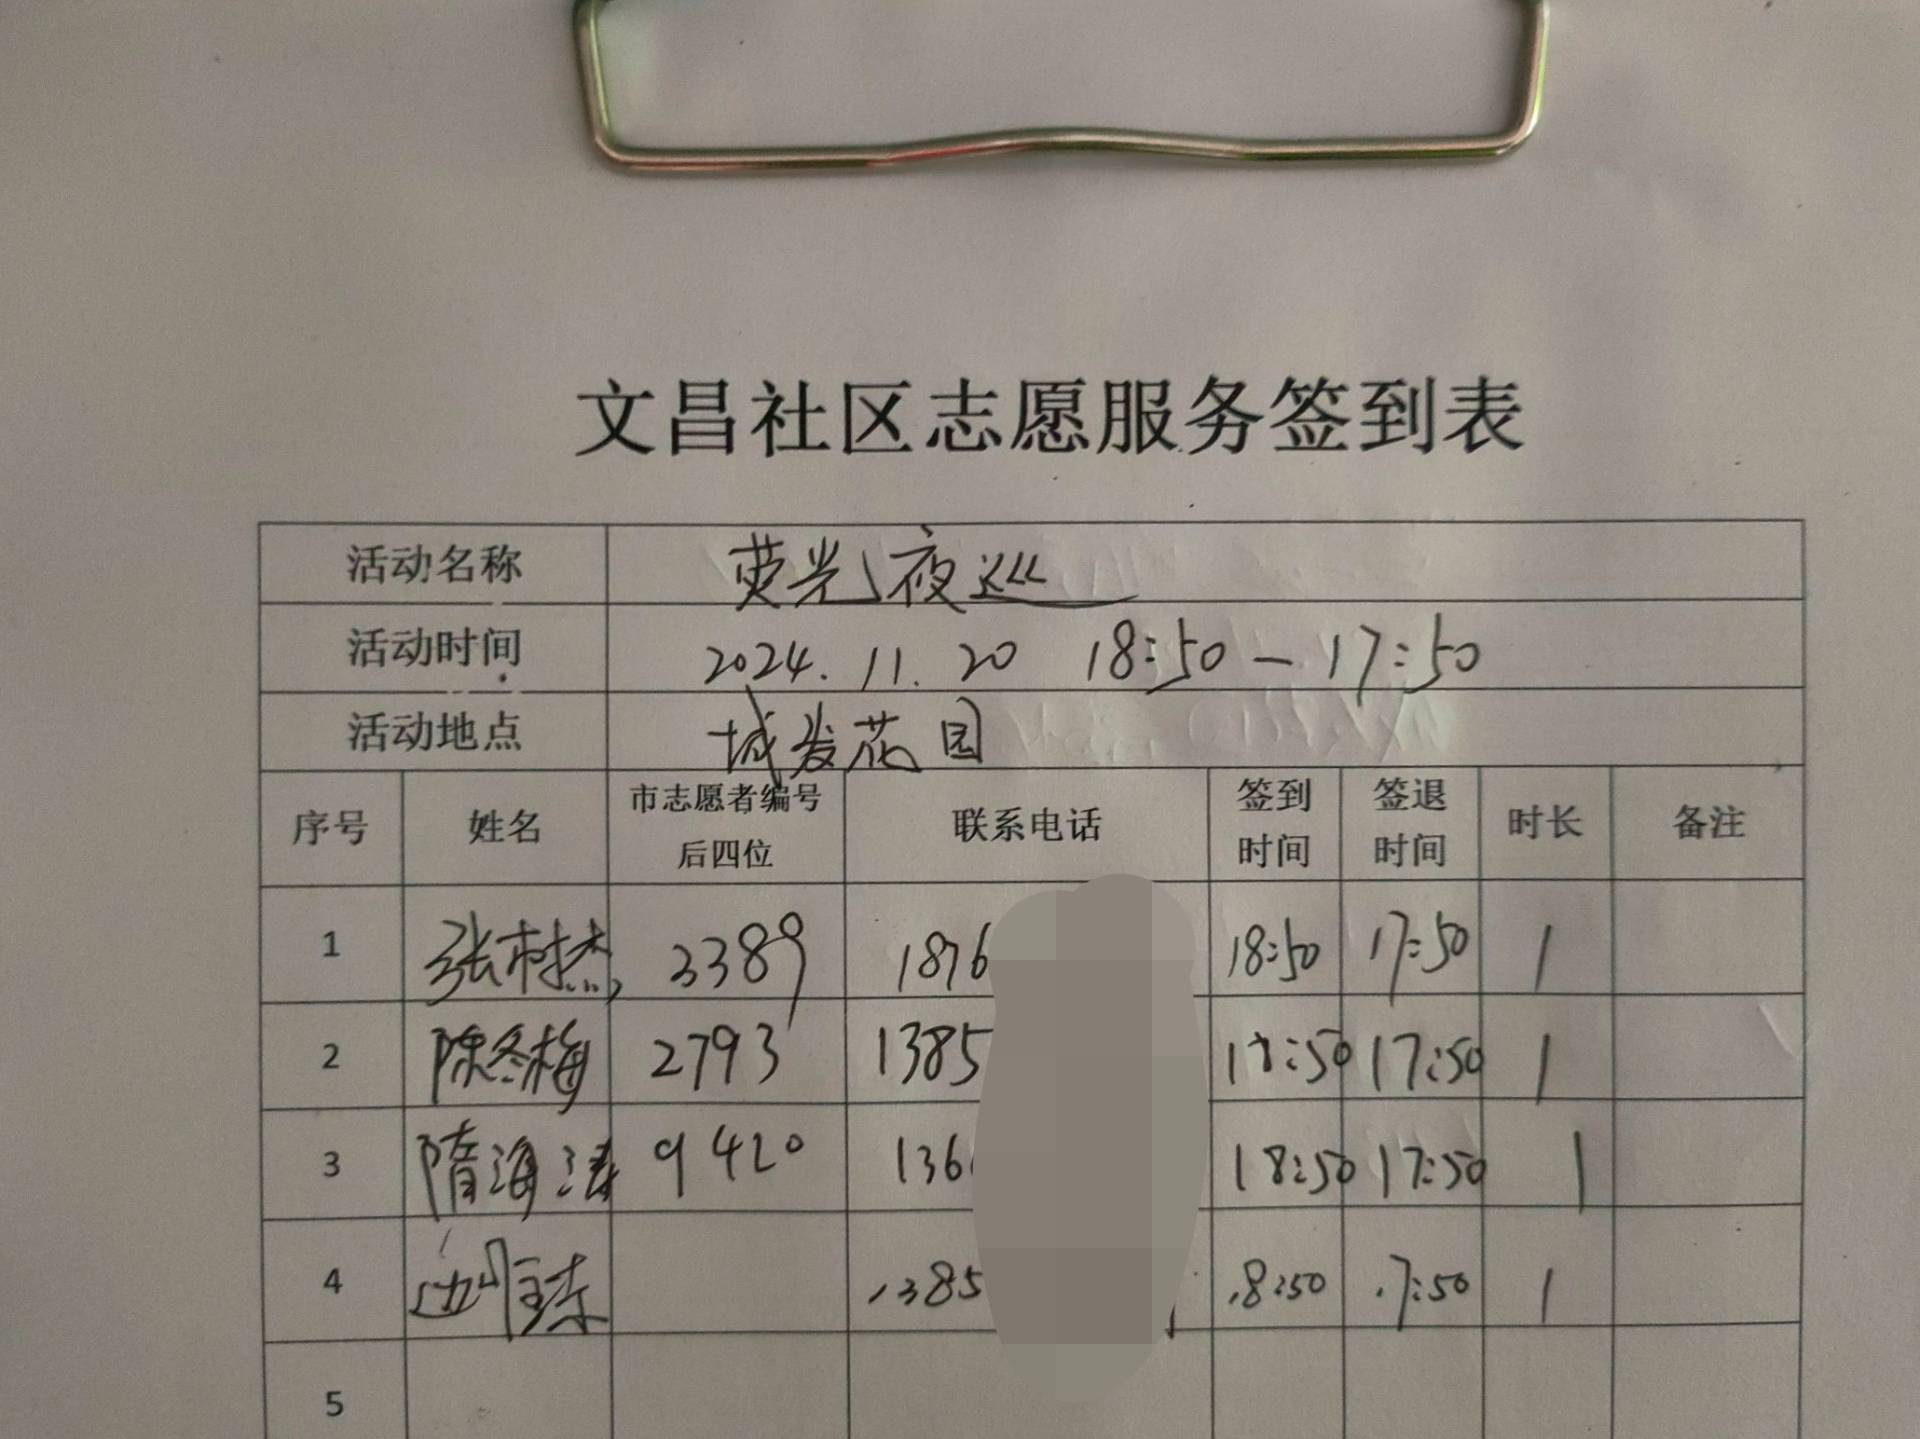 文昌社区志愿服务签到表
活动名称 荧光夜巡
活动时间 2024.11.20 18:50-17:50
活动地点 城发花园
序号 姓名 市志愿者编号后四位 联系电话 签到时间 签退时间 时长 备注
1 张树杰 3389 1876 18:50 17:50 1
2 陈冬梅 2793 1385 18:50 17:50 1
3 隋海涛 9420 136 18:50 17:50 1
4 1385 18:50 17:50 1
5